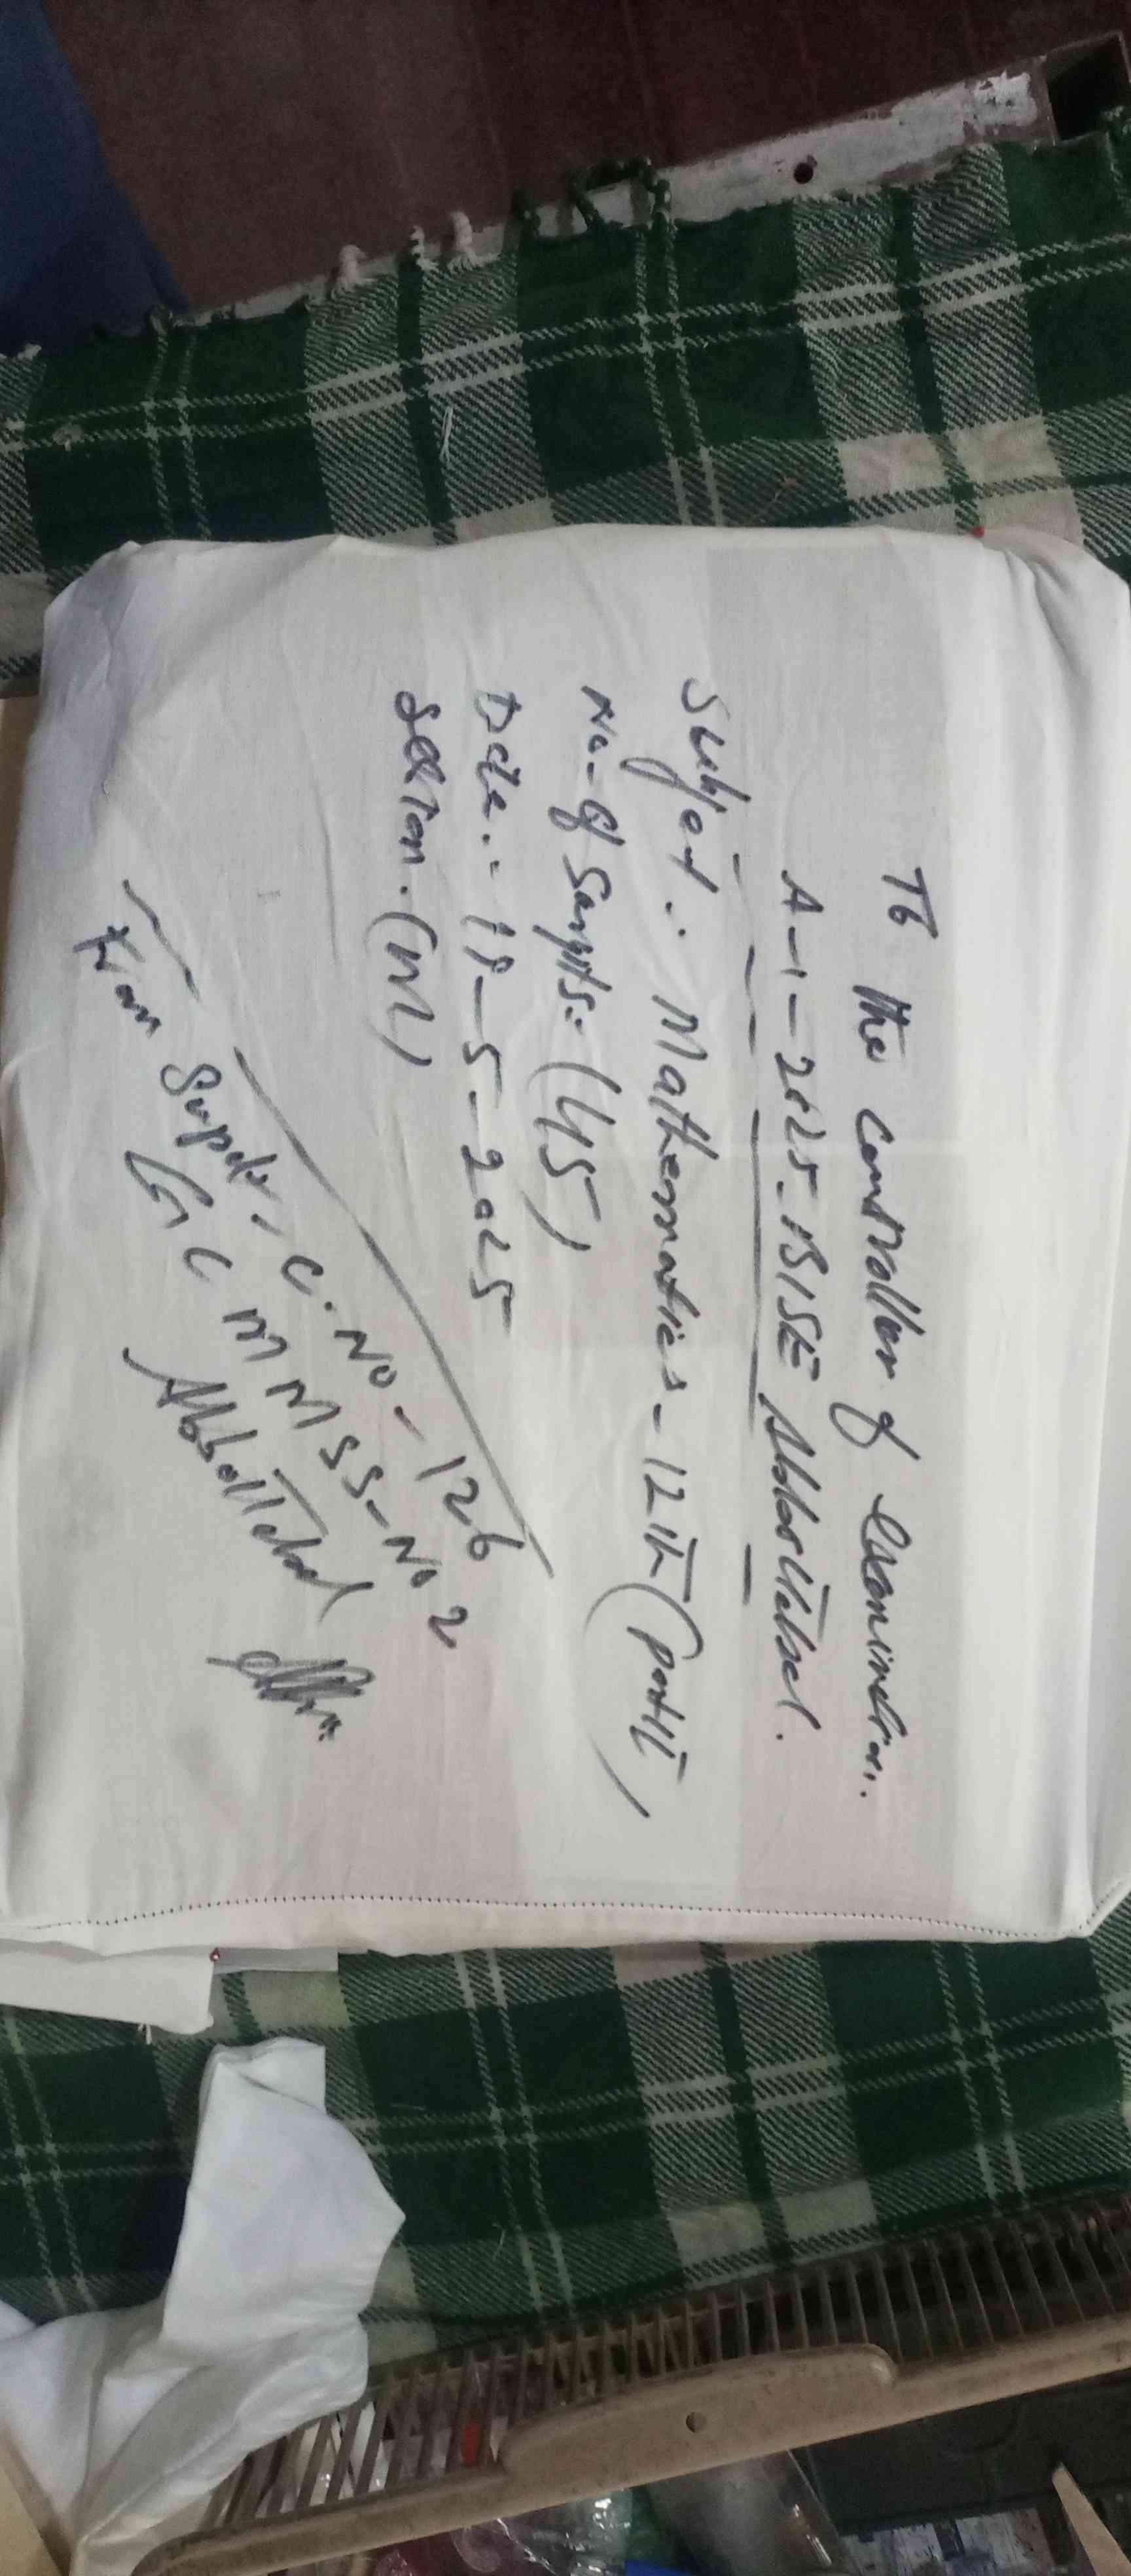 To the controller of Examination.
A-1-2025-BISE Abbottabad.
Subject: Mathematics-12th (Part II)
No-of Scripts:- (45)
Date:- 18-5-2025
Session. (M)
From Supdt, C.No-126
GCMHSS-No2
Abbottabad